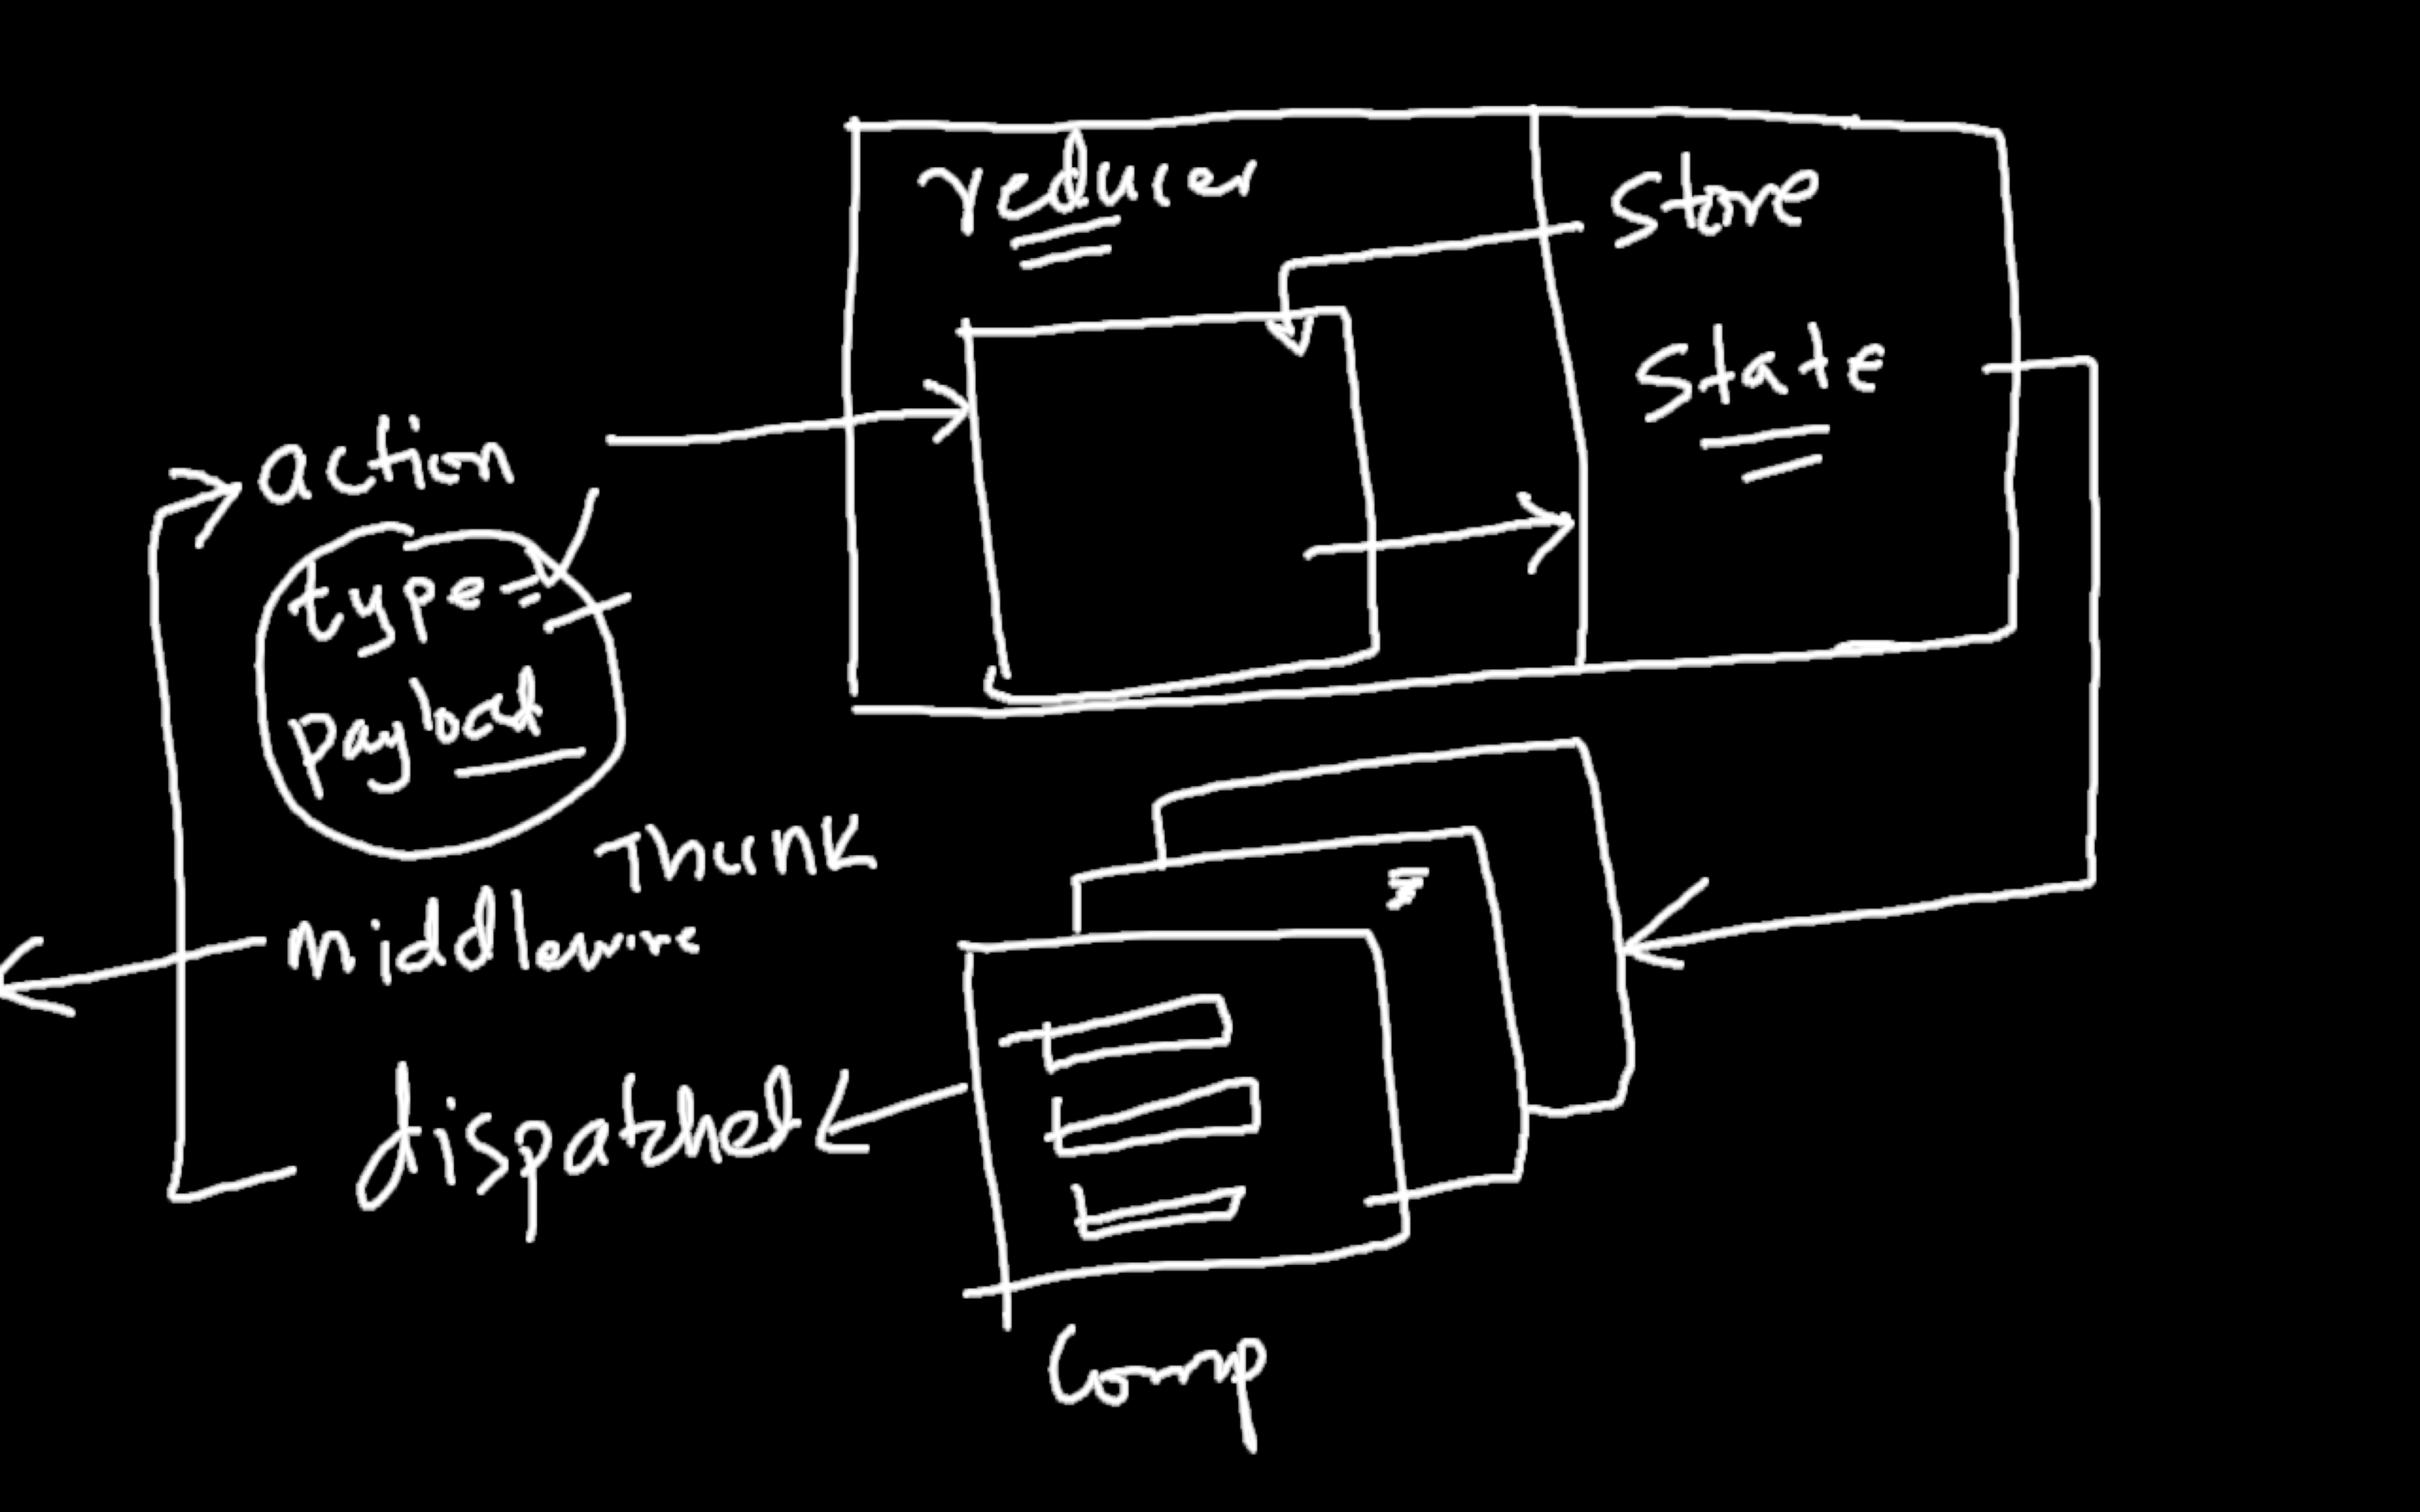 reducer
store
state
action
type =
payload
Thunk
Middlewire
dispatched
Comp